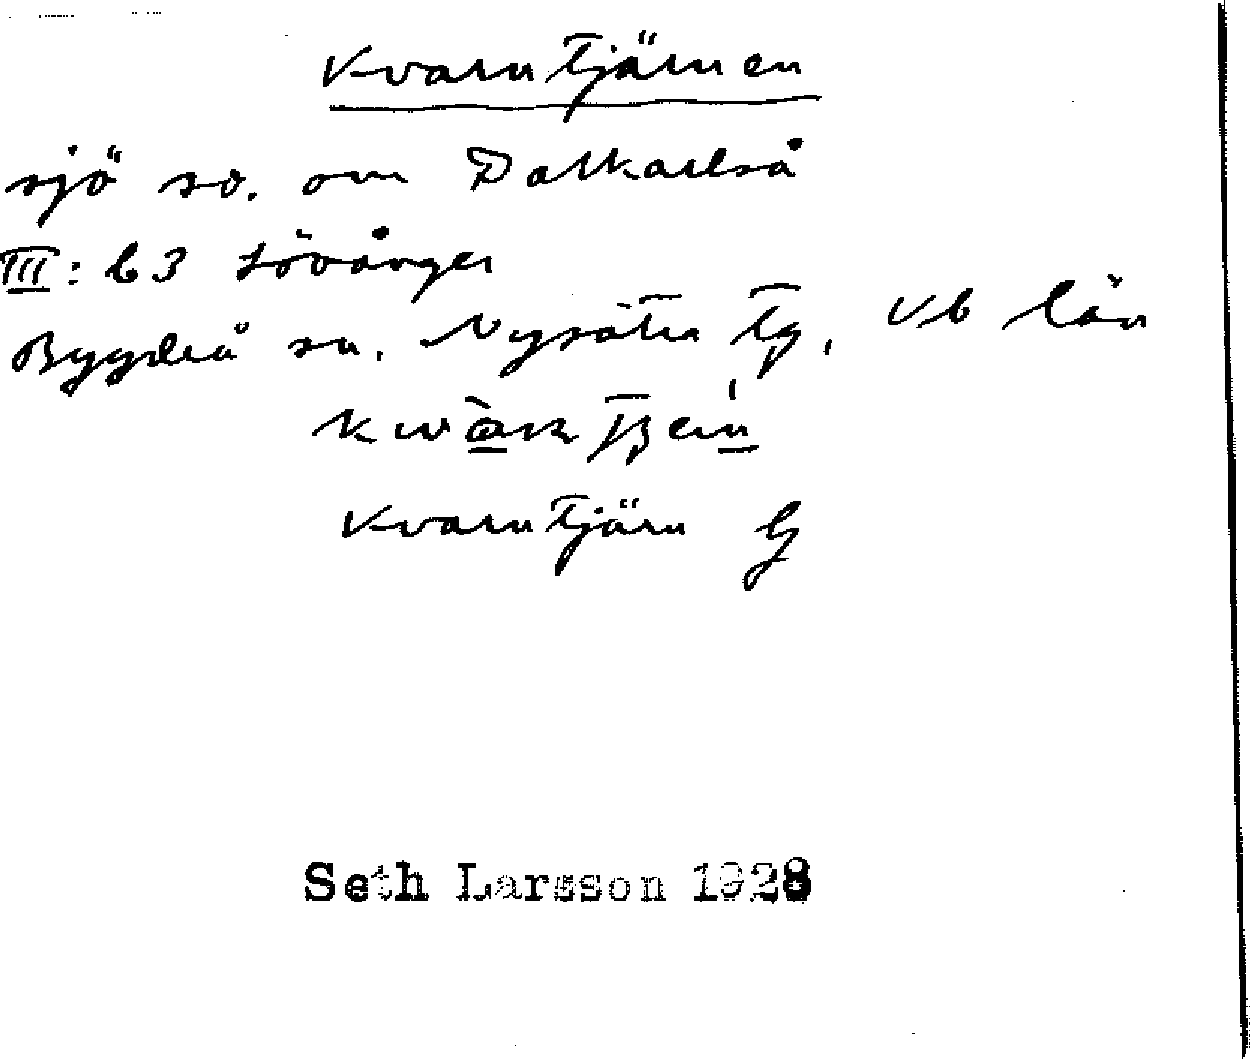 Kvarntjärnen
sjö so. om Dalkarlså
III: b3 Lövånger
Bygdeå sn. Nysätra tg, Vb län
Kvarntjärn G
Seth Larsson 1928